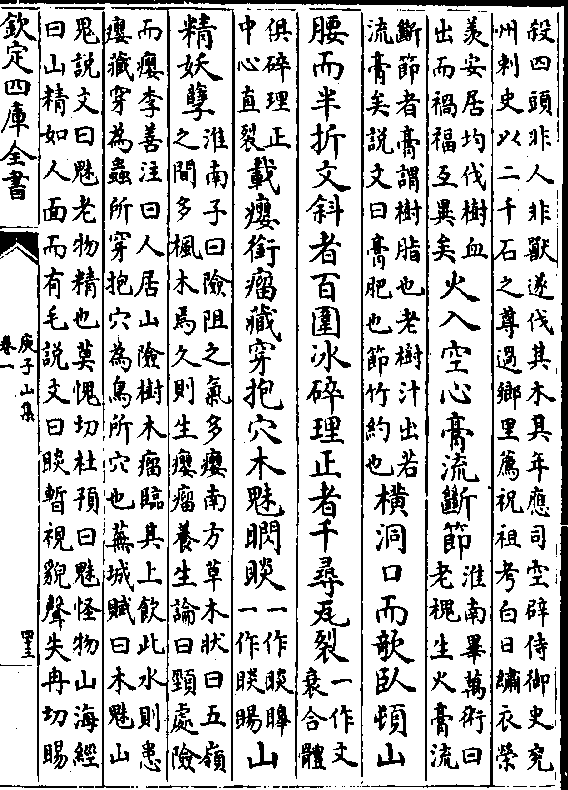 殺四頭非人非獸遂伐其木其年應司空辟侍御史兖
州刺史以二千石之尊過鄉里薦祝祖考白日繡衣榮
羨安居均伐樹血
出而禍福互異矣
火入空心膏流斷節
淮南畢萬術曰
老槐生火膏流
斷節者膏謂樹脂也老樹汁出若
流膏矣說文曰膏肥也節竹約也
橫洞口而欹臥頓山
腰而半折文斜者百圍冰碎理正者千尋瓦裂
一作文
衺合體
俱碎理正
中心直裂
載癭銜瘤藏穿抱穴木魅䁑睒
一作睒睪
一作睒睗
山
精妖孽
淮南子曰險阻之氣多癭南方草木狀曰五嶺
之間多楓木焉久則生癭瘤養生論曰頸處險
而癭李善注曰人居山險樹木瘤臨其上飲此水則患
癭藏穿為蟲所穿抱穴為鳥所穴也蕪城賦曰木魅山
鬼說文曰魅老物精也莫愧切杜預曰魅怪物山海經
曰山精如人面而有毛說文曰睒暫視貌聲失冉切睗
欽定四庫全書
庾子山集
卷一